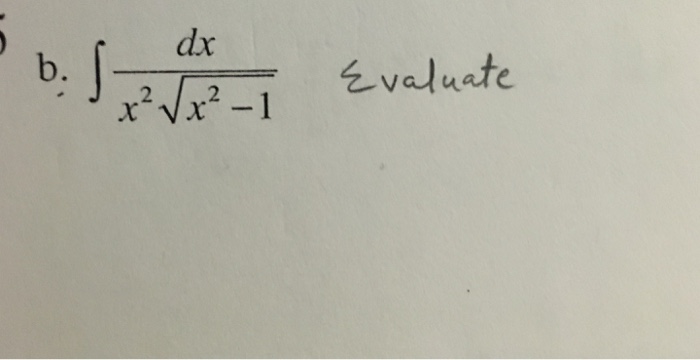 b. ∫ dx / x² √x² − 1 Evaluate